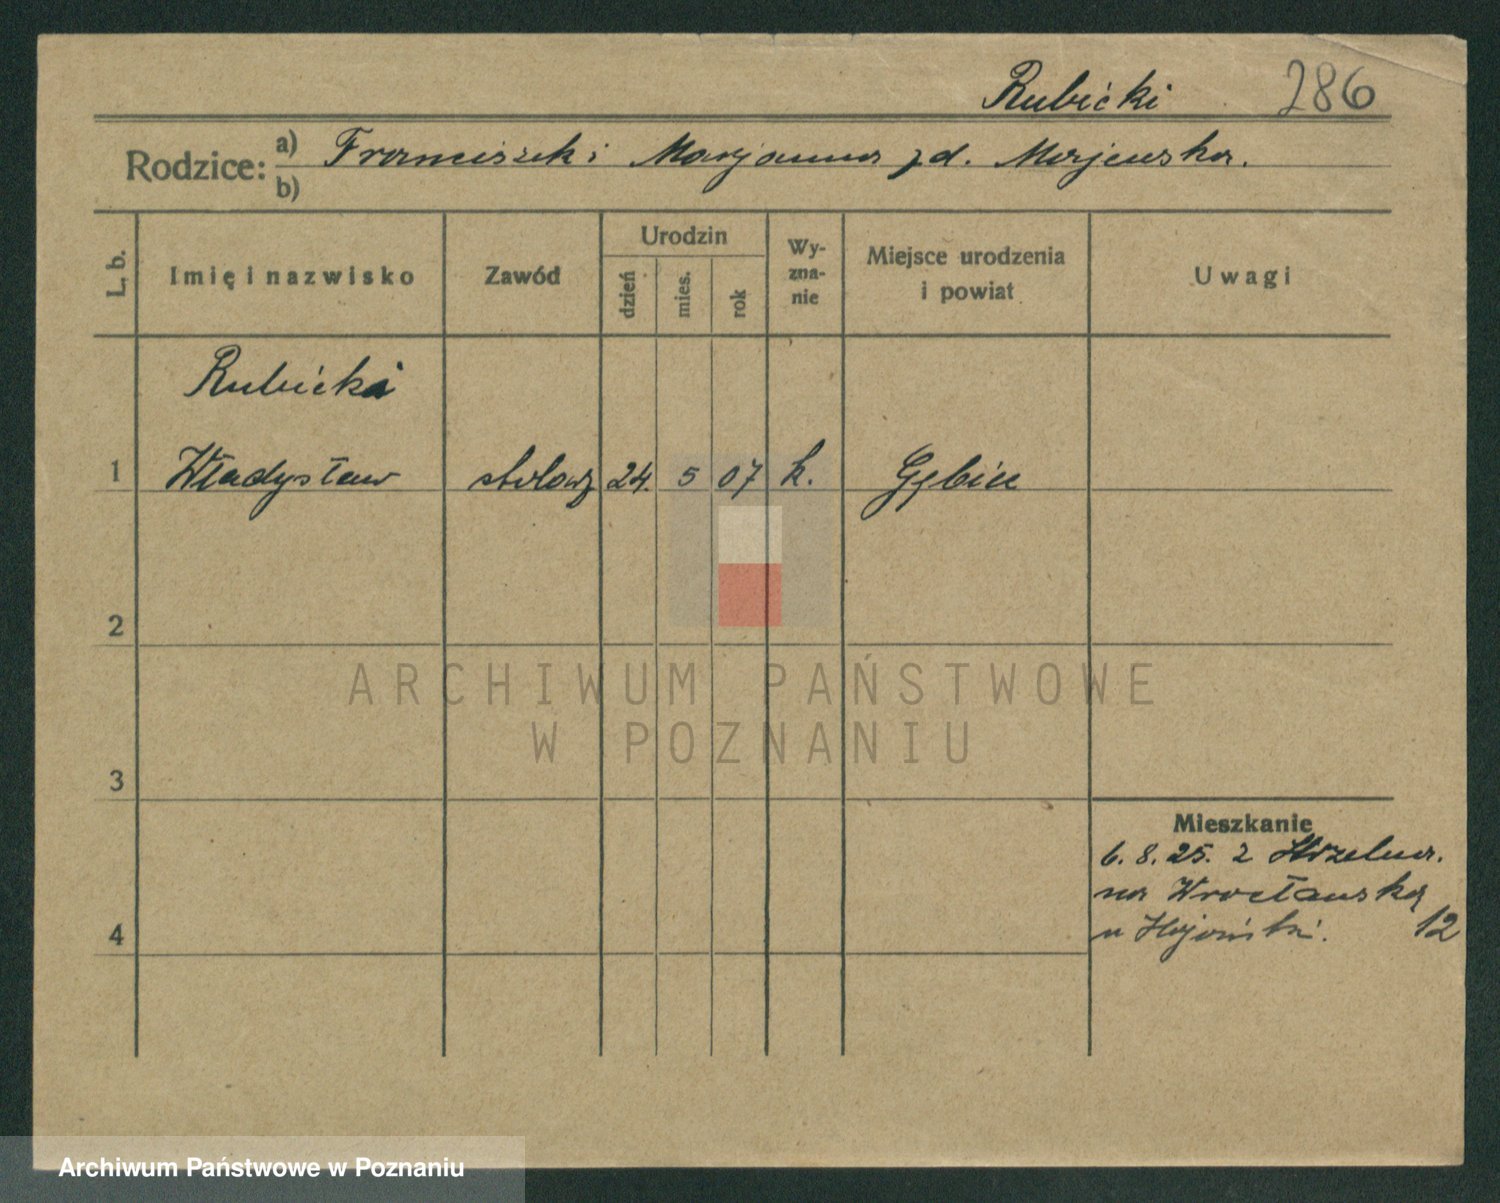 Rubicki 286
Rodzice: a) Franciszek i Marjanna zd. Majewska.
b)
L. b. Imię i nazwisko Zawód Urodzin dzień mies. rok Wy-zna-nie Miejsce urodzenia i powiat Uwagi
Rubicki
1 Władysław stolarz 24. 5 07 k. Gębice
2
3
ARCHIWUM PAŃSTWOWE
W POZNANIU
Mieszkanie
6. 8. 25. z Strzelna.
na Wrocławska 12
4 u
Archiwum Państwowe w Poznaniu